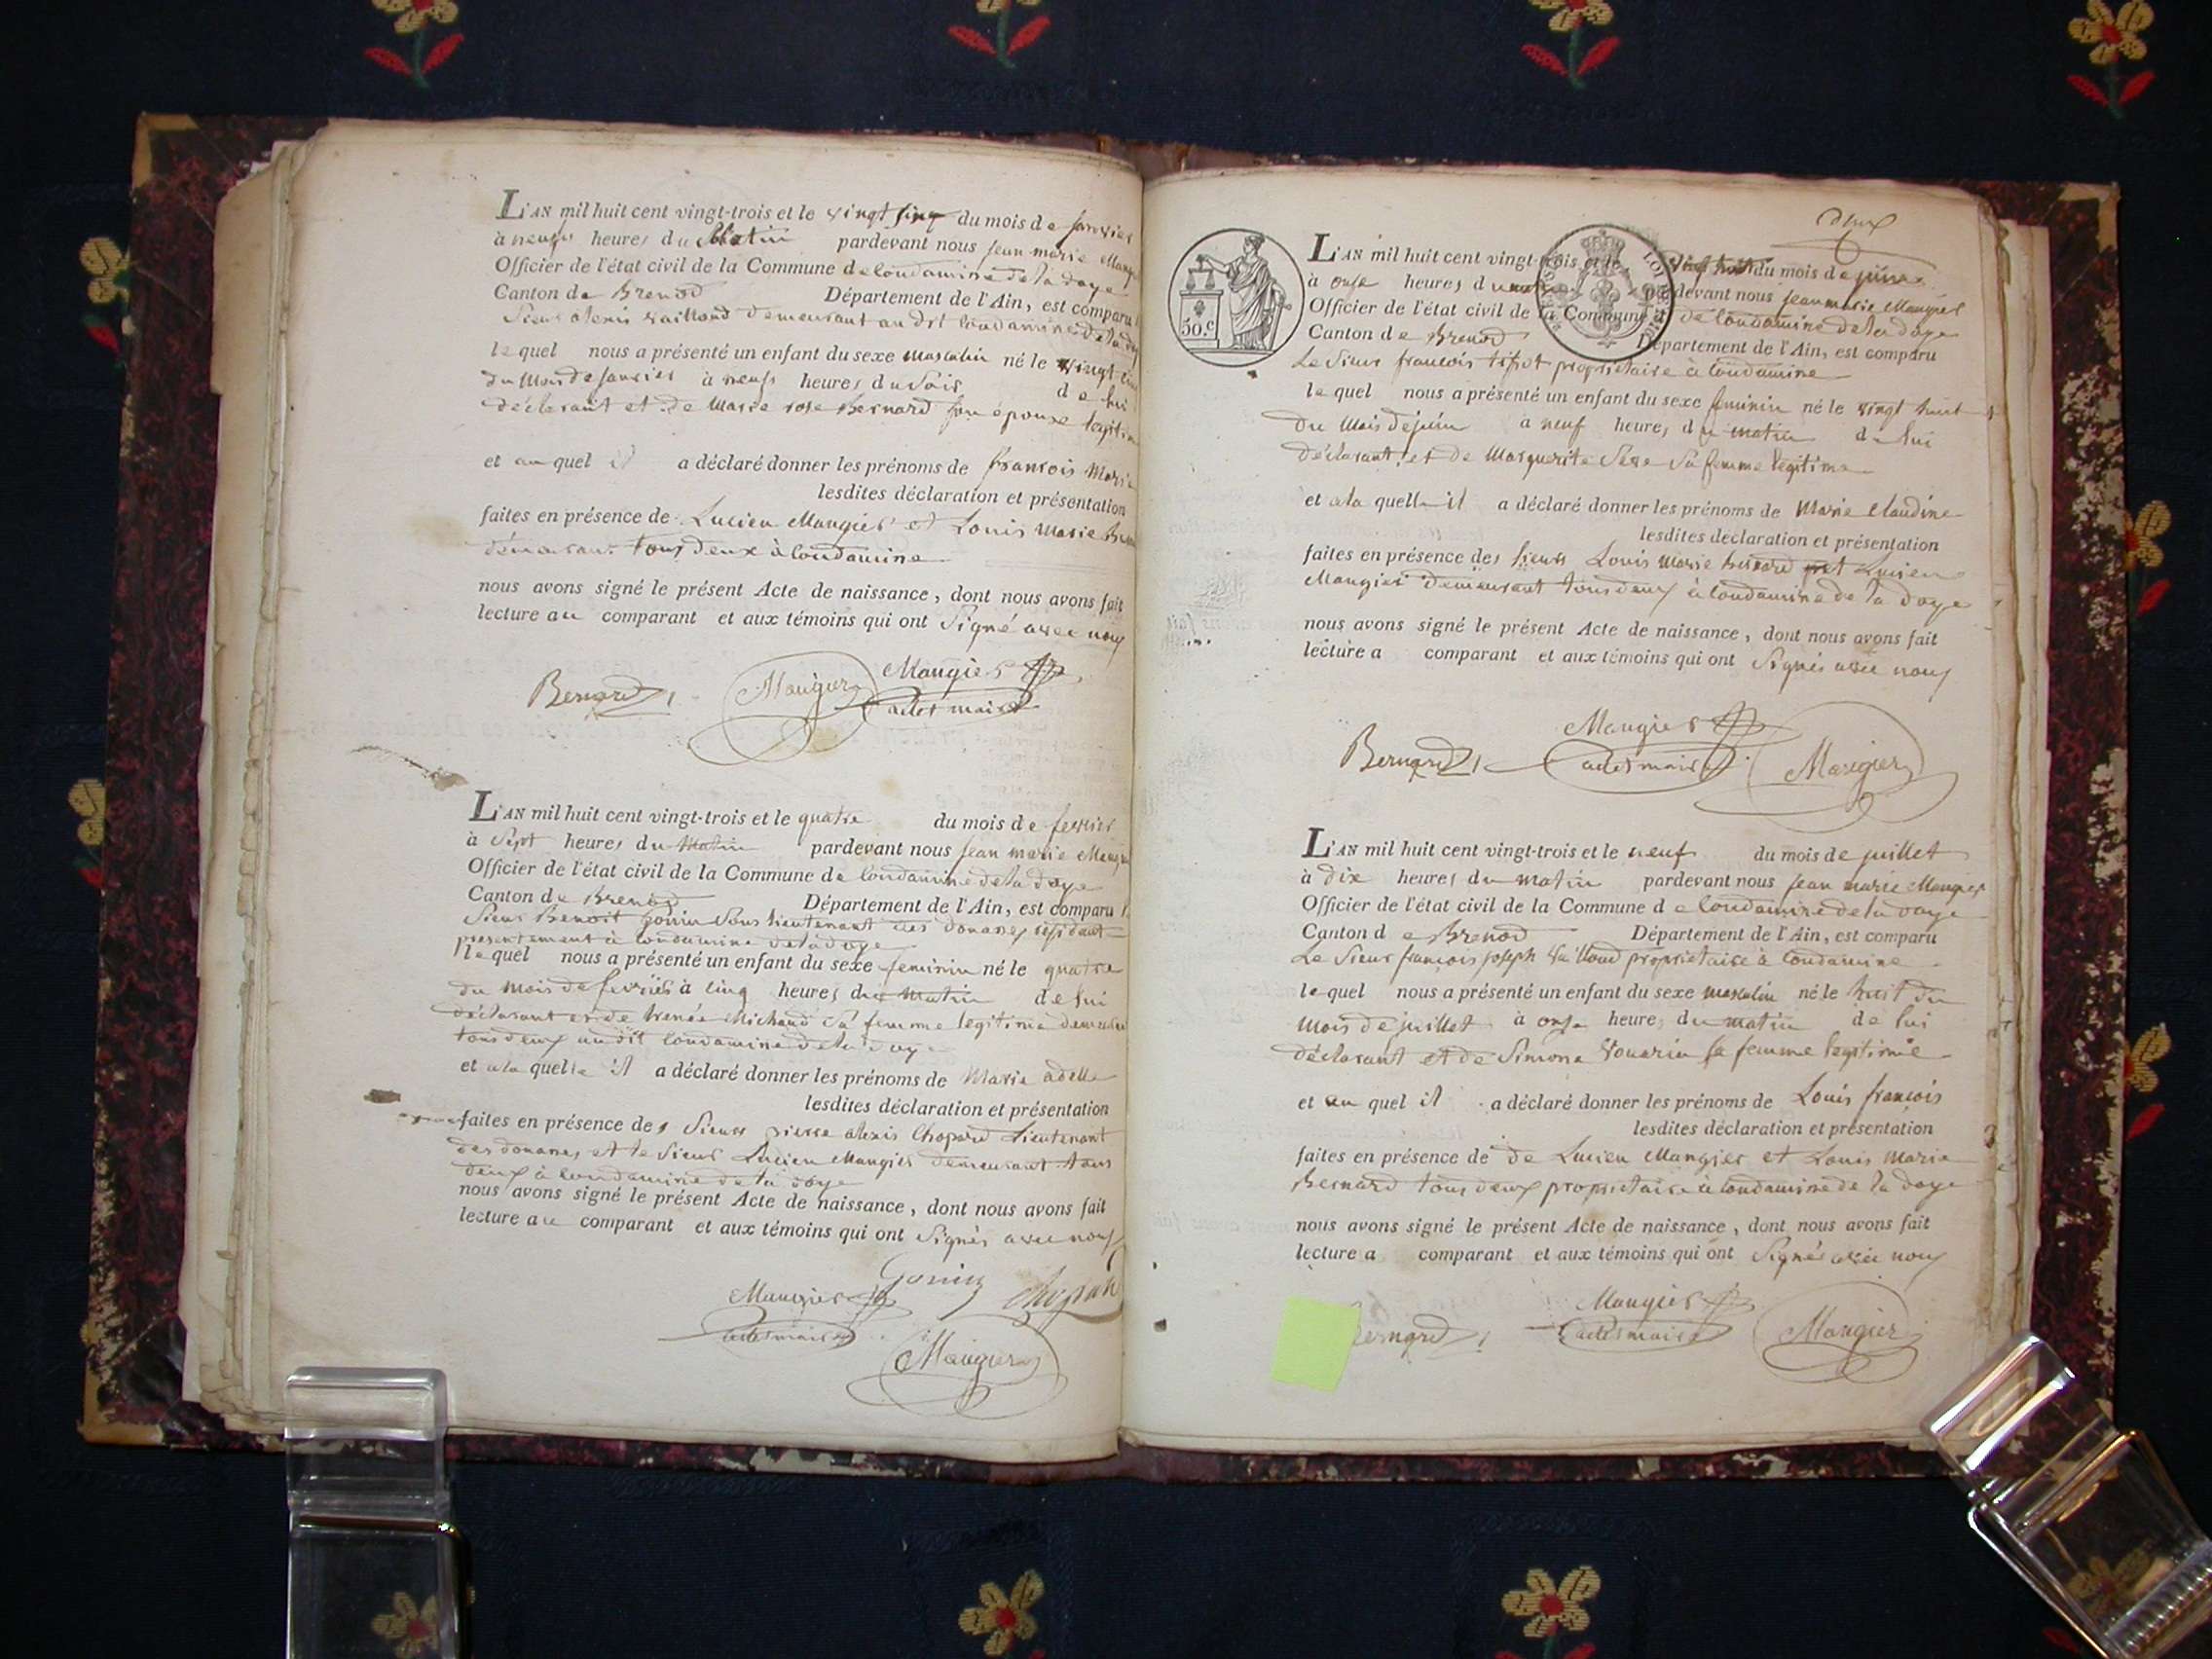 L'AN mil huit cent vingt-trois et le vingt sinq du mois de janvier
à neufs heures du Matin pardevant nous jean marie
Officier de l'état civil de la Commune de Condamine de la doye
Canton de Brenod Département de l'Ain, est comparu
Sieur alexis vailloud demeurant au dit Condamine de la
le quel nous a présenté un enfant du sexe masculin né le vingt
du Mois de janvier à neufs heures du Soir de lui
déclarant et de Marie rose Bernard son épouse
et au quel il a déclaré donner les prénoms de francois Marie
lesdites déclaration et présentation
faites en présence de Lucien Mangier et Louis Marie
demeurant tous deux à Condamine
nous avons signé le présent Acte de naissance, dont nous avons fait
lecture au comparant et aux témoins qui ont Signé avec nous
Bernard Mangier Mangier
maire
L'AN mil huit cent vingt-trois et le quatre du mois de fevrier
à Sept heures du Matin pardevant nous jean marie
Officier de l'état civil de la Commune de Condamine de la doye
Canton de Brenod Département de l'Ain, est comparu
Sieur Benoit gonin Sous lieutenant des douanes residant
presentement à Condamine de la doye
le quel nous a présenté un enfant du sexe feminin né le quatre
du mois de fevrier à cinq heures du Matin de lui
déclarant et de Michaud Sa femme legitime
tous deux au dit Condamine de la doye
et a la quelle il a déclaré donner les prénoms de Marie adelle
lesdites déclaration et présentation
faites en présence des Sieurs pierre alexis Chopard Lieutenant
des douanes et le Sieur Lucien Mangier demeurant tous
deux à Condamine de la doye
nous avons signé le présent Acte de naissance, dont nous avons fait
lecture au comparant et aux témoins qui ont Signés avec nous
Gonin Chopard
Mangier
maire
Mangier
deux
50.c
L'AN mil huit cent vingt-trois et le vingt huit du mois de juin
à onze heures du pardevant nous jean marie Mangier
Officier de l'état civil de la Commune de Condamine de la doye
Canton de Brenod Département de l'Ain, est comparu
Le Sieur francois tissot proprietaire à Condamine
le quel nous a présenté un enfant du sexe feminin né le vingt huit
du Mois de juin à neuf heures du matin de lui
déclarant et de Marguerite Sa femme legitime
et a la quelle il a déclaré donner les prénoms de Marie Claudine
lesdites declaration et présentation
faites en présence des Sieurs Louis Marie Bernard et Lucien
Mangier demeurant tous deux à Condamine de la doye
nous avons signé le présent Acte de naissance, dont nous avons fait
lecture a comparant et aux témoins qui ont Signés avec nous
Mangier
Bernard maire Mangier
L'AN mil huit cent vingt-trois et le neuf du mois de juillet
à dix heures du matin pardevant nous jean marie Mangier
Officier de l'état civil de la Commune de Condamine de la doye
Canton de Brenod Département de l'Ain, est comparu
Le Sieur françois joseph vailloud proprietaire à Condamine
le quel nous a présenté un enfant du sexe masculin né le huit du
Mois de juillet à onze heures du matin de lui
déclarant et de Simone Sa femme legitime
et au quel il a déclaré donner les prénoms de Louis françois
lesdites déclaration et présentation
faites en présence de de Lucien Mangier et Louis Marie
Bernard tous deux proprietaire à Condamine de la doye
nous avons signé le présent Acte de naissance, dont nous avons fait
lecture a comparant et aux témoins qui ont Signés avec nous
Mangier
ernard maire Mangier